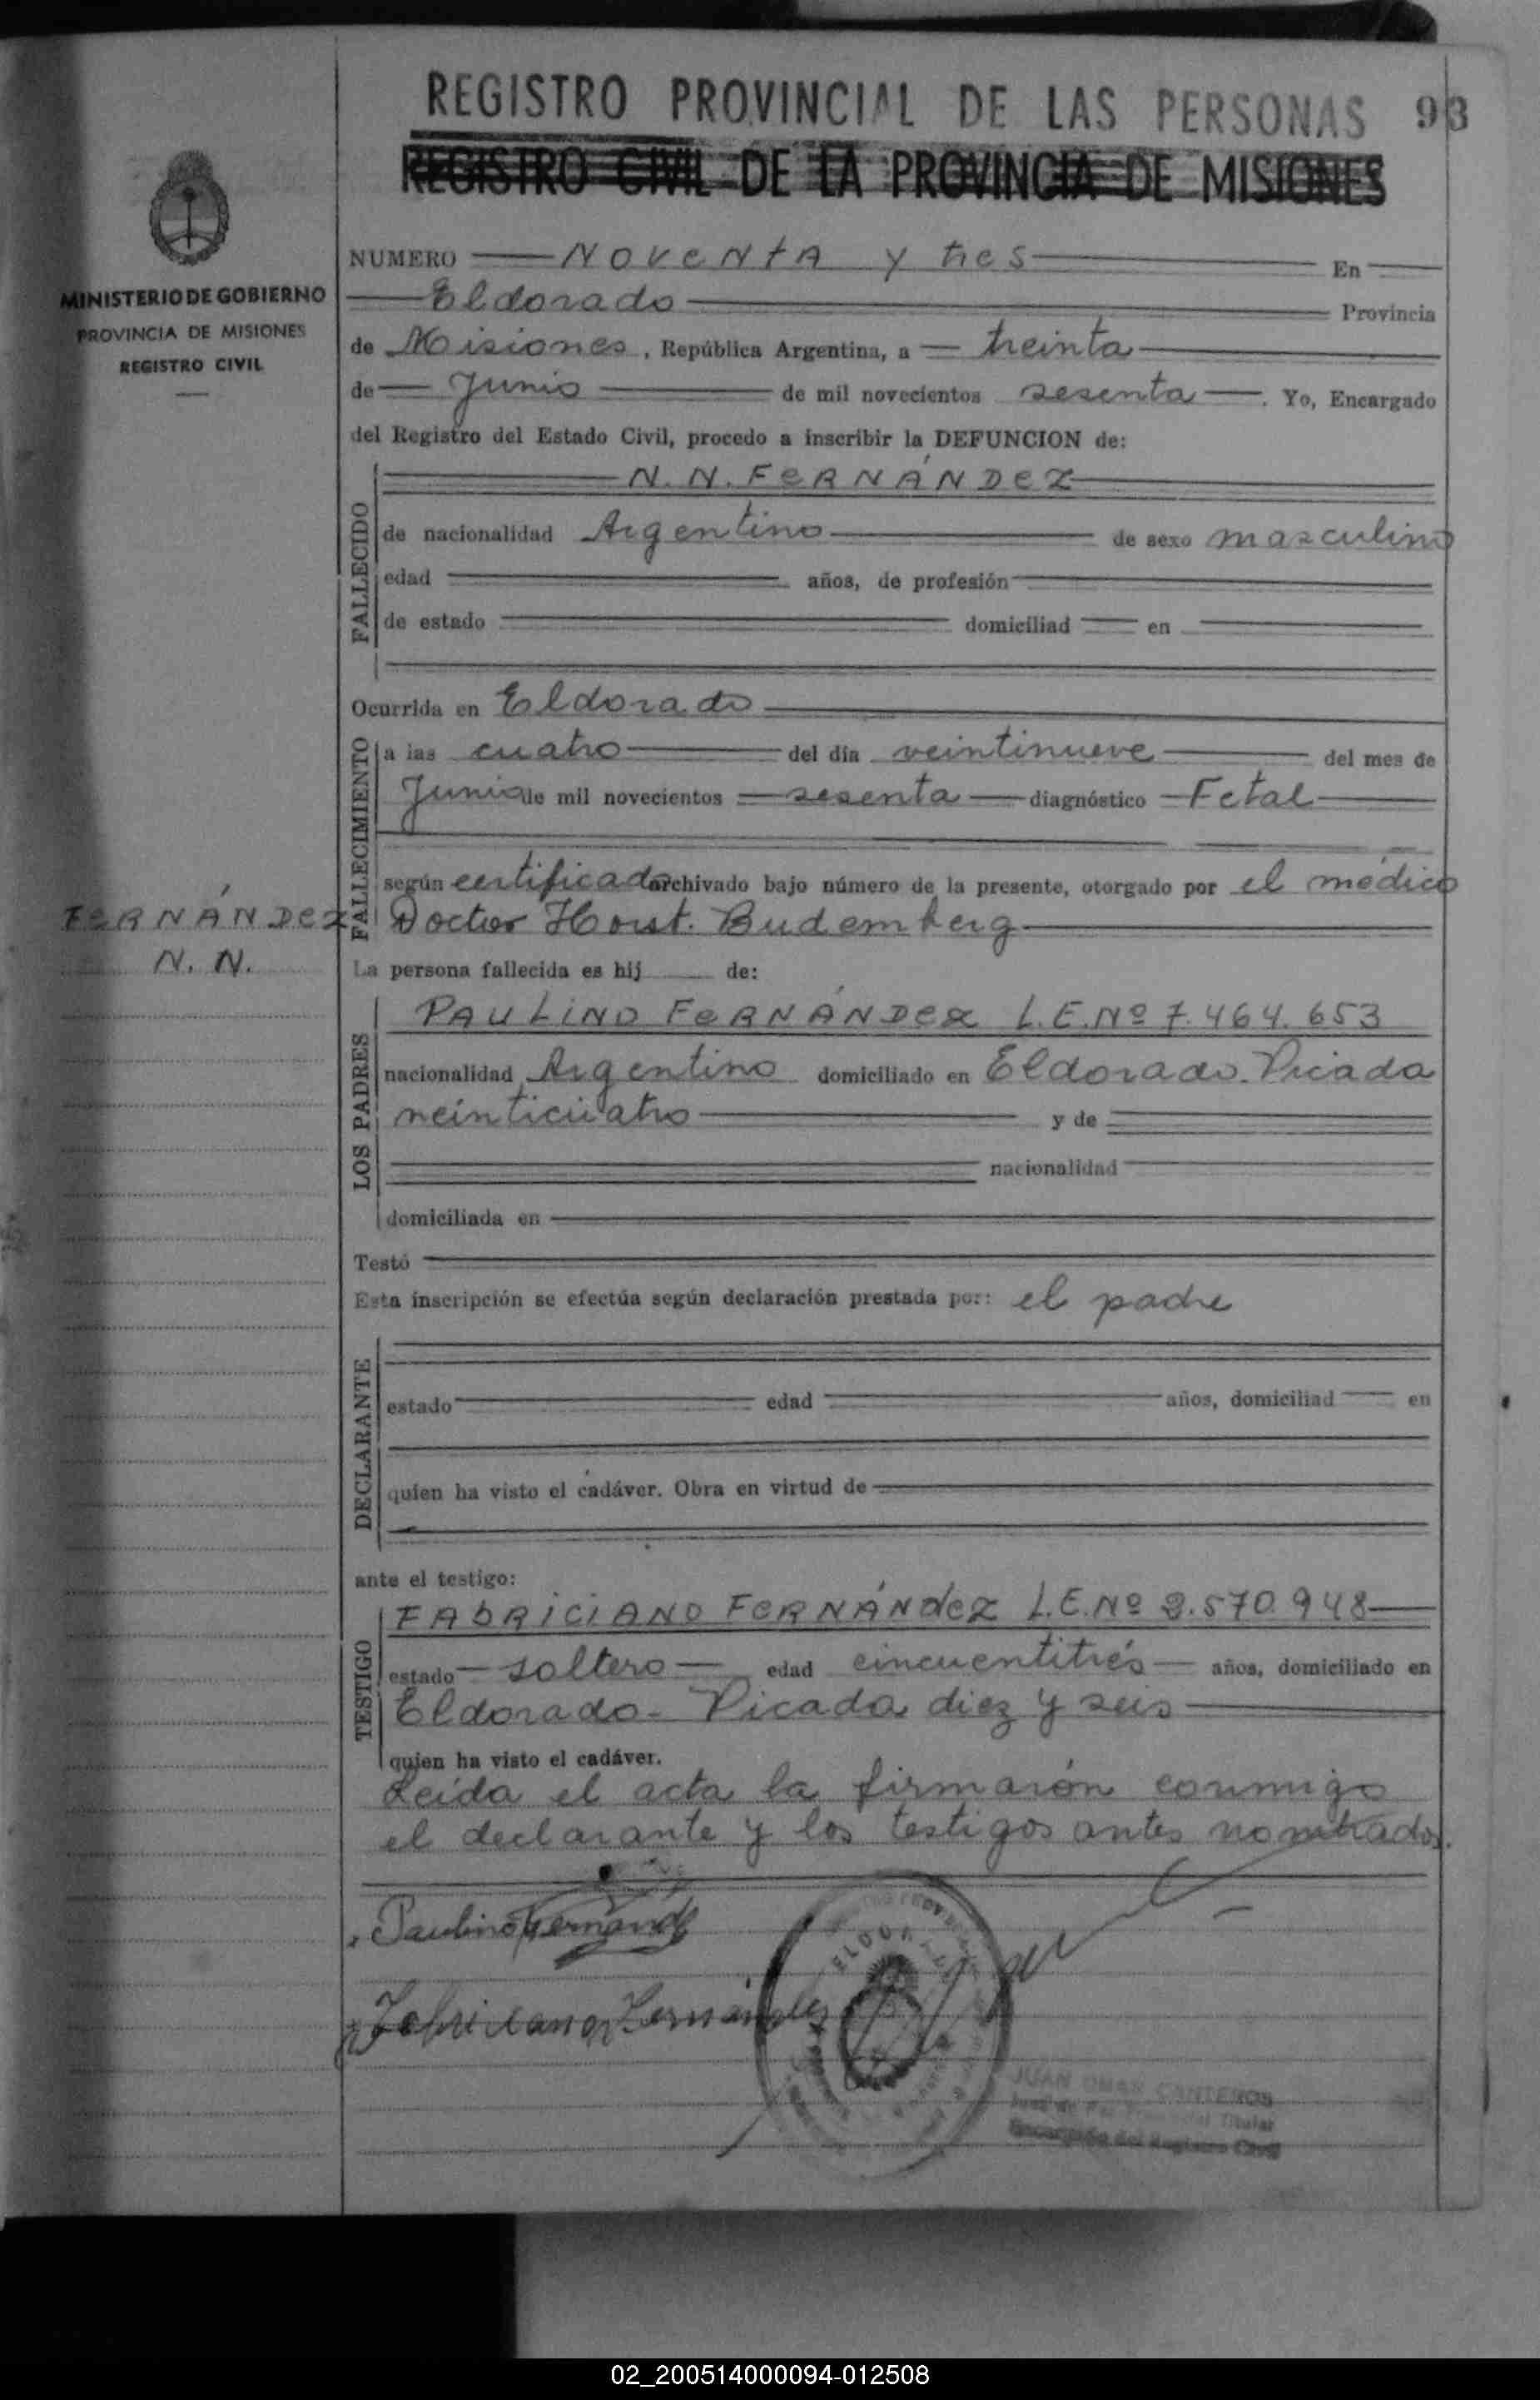 REGISTRO PROVINCIAL DE LAS PERSONAS 93
REGISTRO CIVIL DE LA PROVINCIA DE MISIONES
MINISTERIO DE GOBIERNO
PROVINCIA DE MISIONES
REGISTRO CIVIL
NUMERO NOVENTA y tres En
Eldorado Provincia
de Misiones, República Argentina, a treinta
de Junio de mil novecientos sesenta. Yo, Encargado
del Registro del Estado Civil, procedo a inscribir la DEFUNCION de:
N. N. FERNÁNDEZ
FALLECIDO
de nacionalidad Argentino de sexo masculino
edad años, de profesión
de estado domiciliad en
Ocurrida en Eldorado
FALLECIMIENTO
a las cuatro del día veintinueve del mes de
Junio de mil novecientos sesenta diagnóstico Fetal
según certificado archivado bajo número de la presente, otorgado por el médico
Doctor Horst. Budemberg
FERNÁNDEZ
N. N.
La persona fallecida es hij de:
LOS PADRES
PAULINO FERNÁNDEZ L.E.Nº 7.464.653
nacionalidad Argentino domiciliado en Eldorado. Picada
veinticuatro y de
nacionalidad
domiciliada en
Testó
Esta inscripción se efectúa según declaración prestada por: el padre
DECLARANTE
estado edad años, domiciliad en
quien ha visto el cadáver. Obra en virtud de
ante el testigo:
TESTIGO
FABRICIANO FERNÁNdEZ L.E.Nº 2.570.948
estado soltero edad cincuentitrés años, domiciliado en
Eldorado - Picada diez y seis
quien ha visto el cadáver.
Leída el acta la firmarón conmigo
el declarante y los testigos antes nombrados.
Paulino Fernández
Fabriciano Fernández
ELDORADO
JUAN OMAR CANTEROS
Juez de Paz Titular
Encargado del Registro Civil
02_200514000094-012508